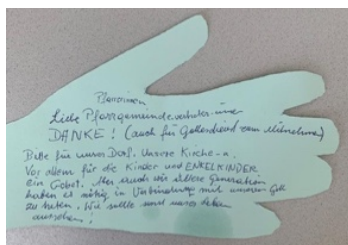 Pfarrerinnen
Liebe Pfarrgemeindevertreter-innen
DANKE! (auch für Gottesdienst zum Mitnehmen)
Bitte für unser Dorf. Unsere Kirche -
Vor allem für die Kinder und ENKELKINDER
ein Gebet. Aber auch wir ältere Generation
haben es nötig in Verbindung mit unseren Gott
zu treten. Wie sollte sonst unser Leben
aussehen!